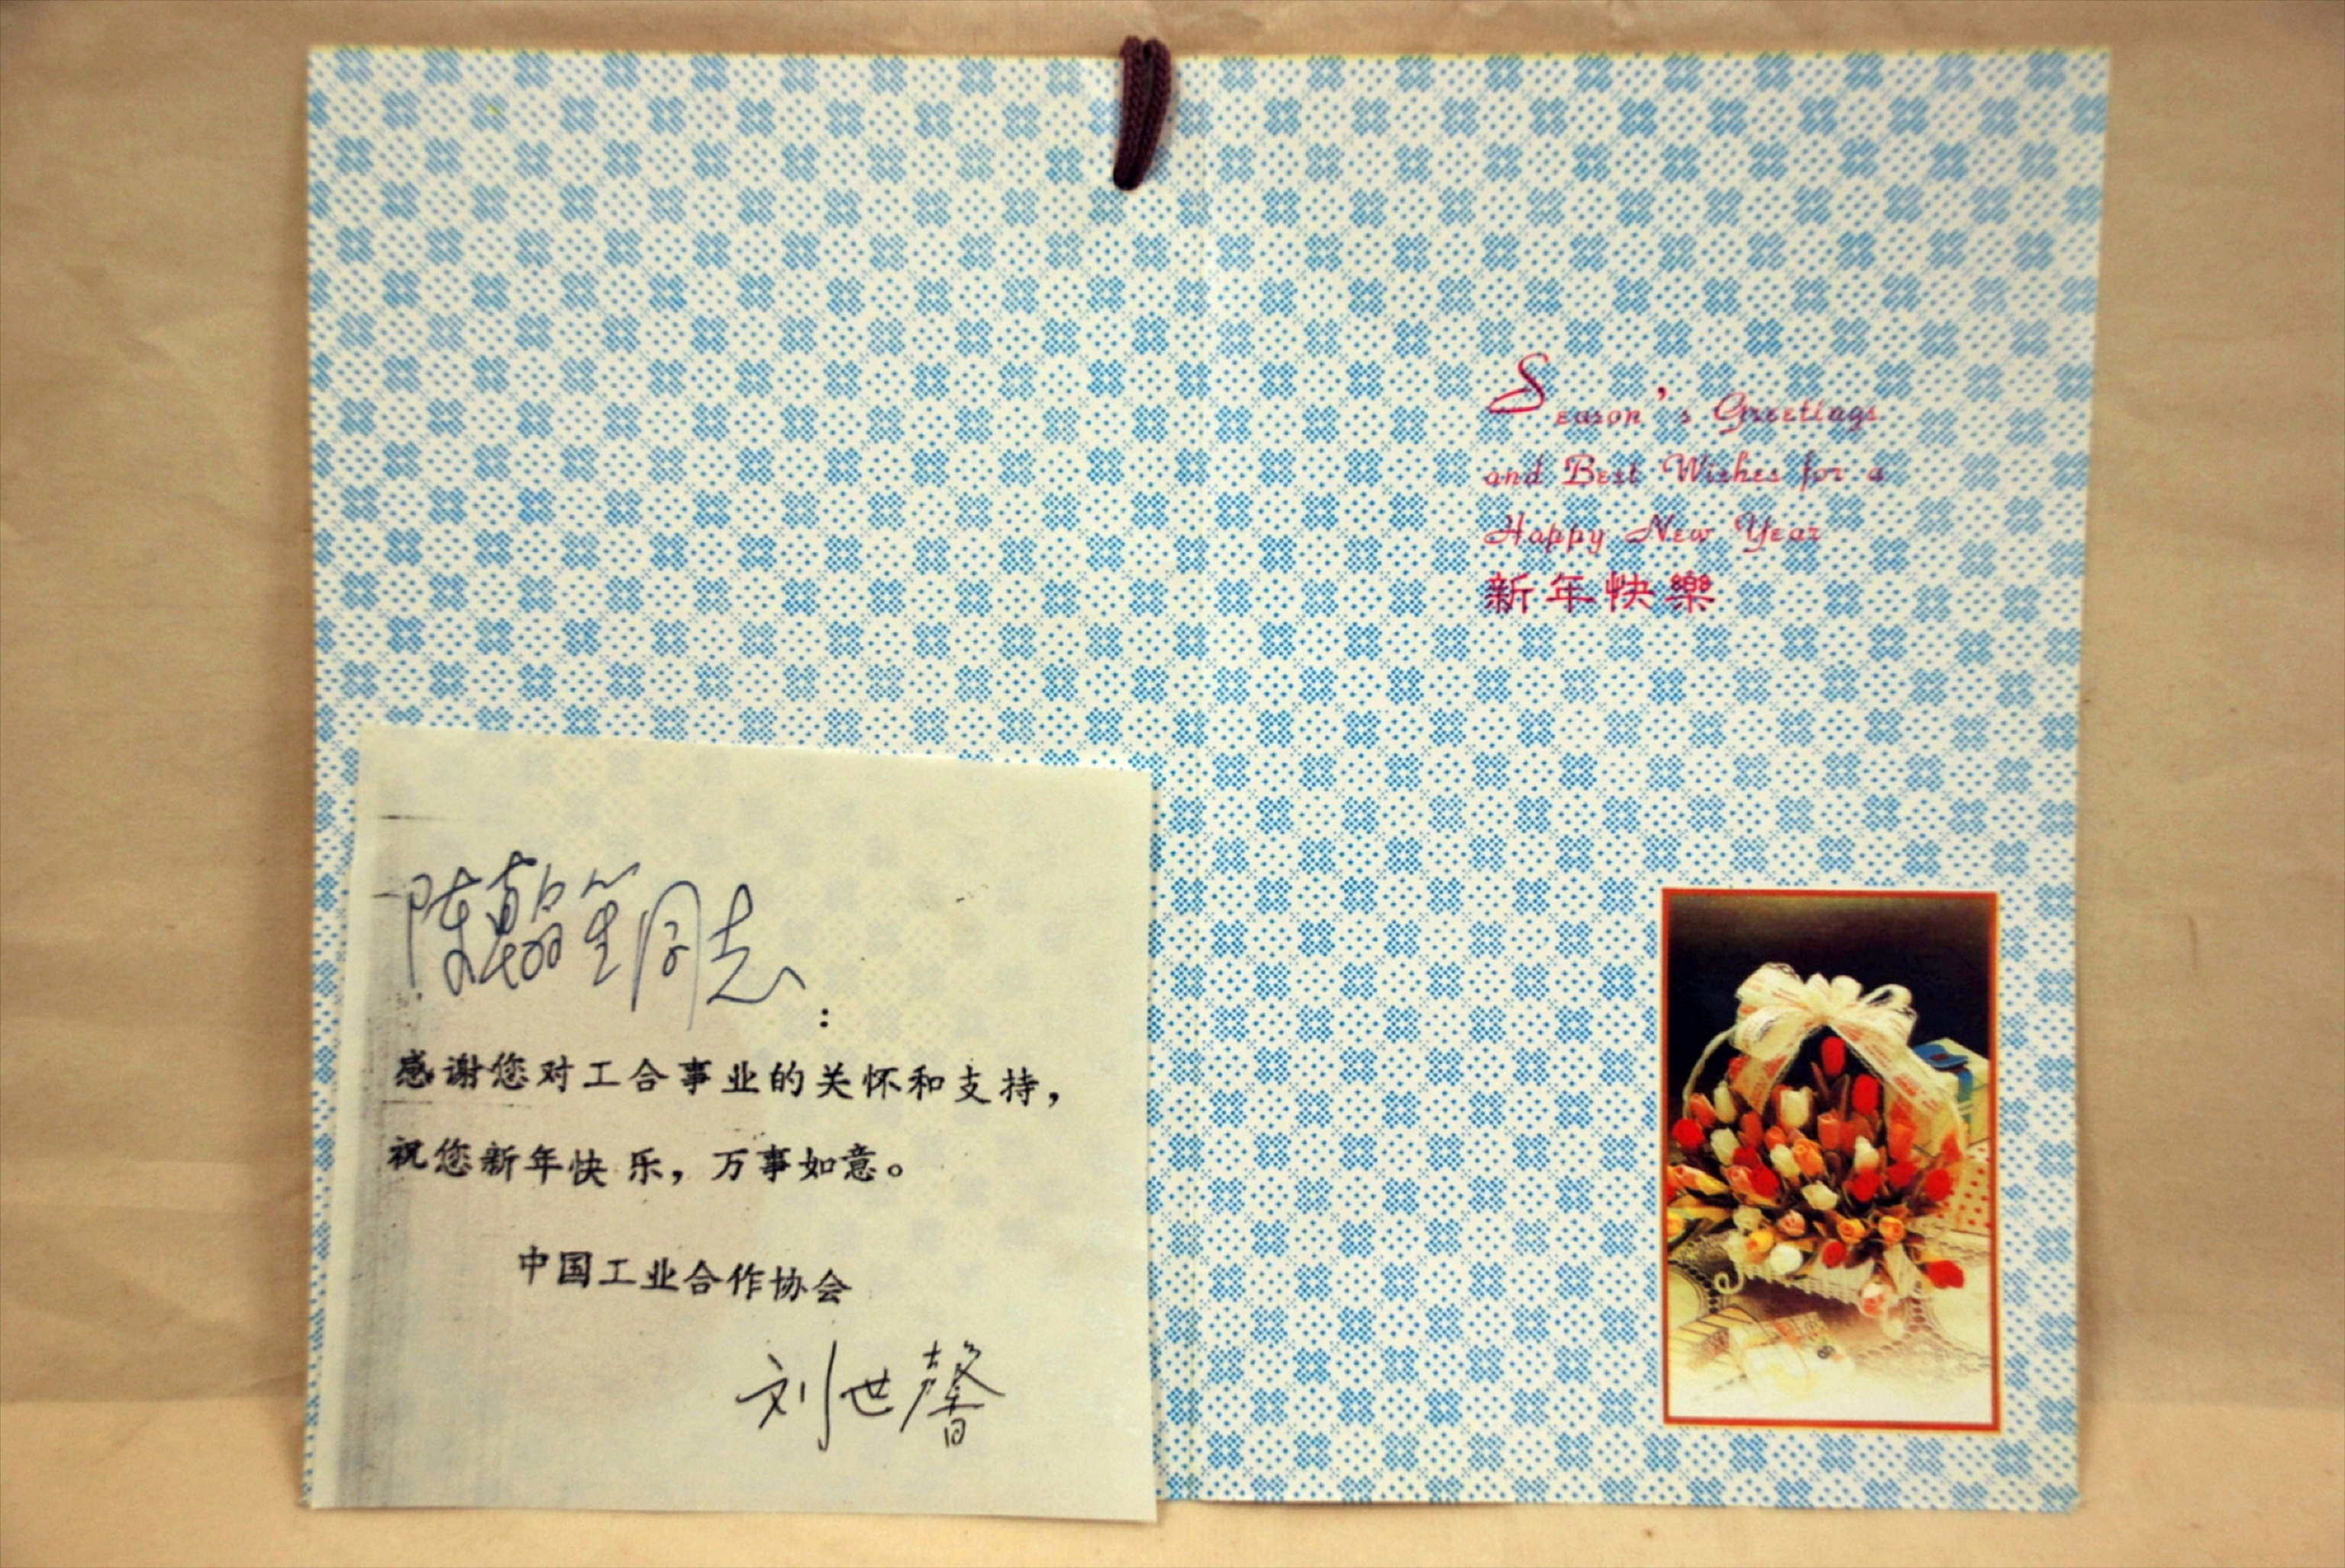 陈翰笙同志：
感谢您对工合事业的关怀和支持，
祝您新年快乐，万事如意。
中国工业合作协会
刘世馨
Season's Greetings
and Best Wishes for a
Happy New Year
新年快樂